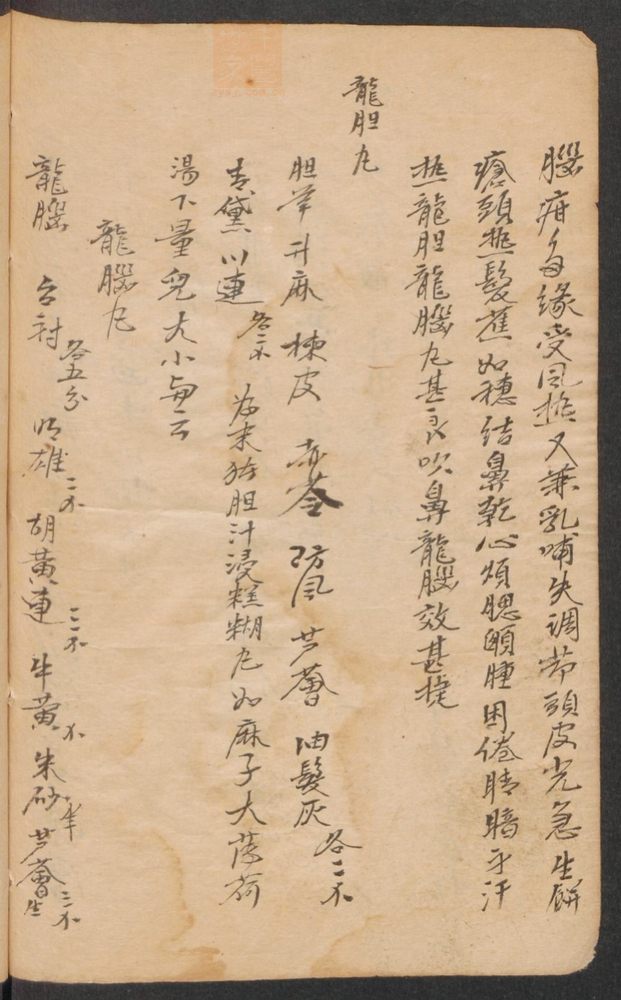 腦疳每緣受風热又兼乳哺失調节頭皮光急生餅
瘡頭热髮蕉如穗结鼻乾心煩腮頤腫困倦睛暗子汗
热龍胆龍腦丸甚良吹鼻龍腦效甚捷
龍胆丸
胆草 升麻 楝皮 赤苓 防風 芦薈 油髮灰 各二
青黛 川連 各 為末猪胆汁浸糕糊丸如麻子大薄荷
湯下量児大小与之
龍腦丸
龍腦 各五分 明雄 二 胡黃連 三 牛黃 朱砂 芦薈 生